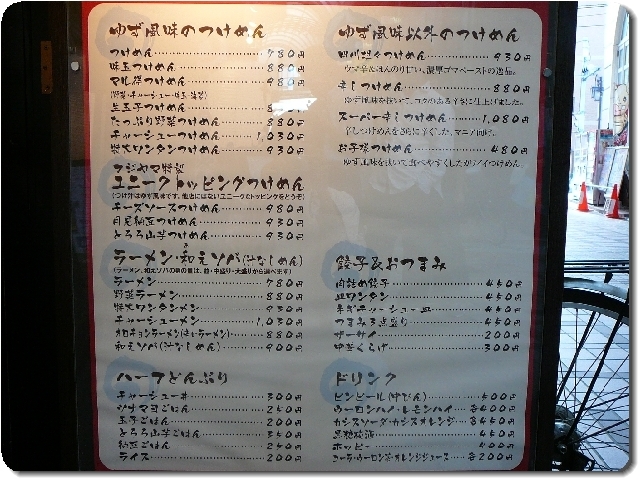 ゆず風味のつけめん
つけめん 780円
味玉つけめん 880円
マル得つけめん 980円
生玉子つけめん
たっぷり野菜つけめん 880円
チャーシューつけめん 1,030円
特大ワンタンつけめん 930円
フジヤマ特製
ユニークトッピングつけめん
(つけ汁はゆず風味です。他店にはないユニークなトッピングをどうぞ)
チーズソースつけめん 980円
月見納豆つけめん 930円
とろろ山芋つけめん 930円
ラーメン・和えソバ(汁なしめん)
(ラーメン、和えソバの麺の量は、並・中盛り・大盛りから選べます)
ラーメン 780円
野菜ラーメン 880円
特大ワンタンメン 930円
チャーシューメン 1,030円
オロチョンラーメン(辛いラーメン) 880円
和えソバ(汁なしめん) 900円
ハーフどんぶり
チャーシュー丼 300円
ツナマヨごはん 250円
玉子ごはん 200円
とろろ山芋ごはん 350円
納豆ごはん 250円
ライス 200円
ゆず風味以外のつけめん
四川担々つけめん 930円
ウマ辛だれのほんのり甘い、濃厚ゴマペーストの逸品。
辛しつけめん 880円
ゆず風味を抜いて、コクのある辛さに仕上げました。
スーパー辛しつけめん 1,080円
辛しつけめんをさらに辛くした、マニア向け。
お子様つけめん 480円
ゆず風味を抜いて食べやすくしたカワイイつけめん。
餃子&おつまみ
肉詰め餃子 450円
皿ワンタン 450円
辛ネギチャーシュー皿 450円
つまみ3点盛り 450円
ザーサイ 200円
中華くらげ 300円
ドリンク
ビンビール(中びん) 500円
ウーロンハイ・レモンハイ 各400円
カシスソーダ・カシスオレンジ 各450円
黒糖梅酒 450円
ホッピー 400円
コーラ・ウーロン茶・オレンジジュース 各200円